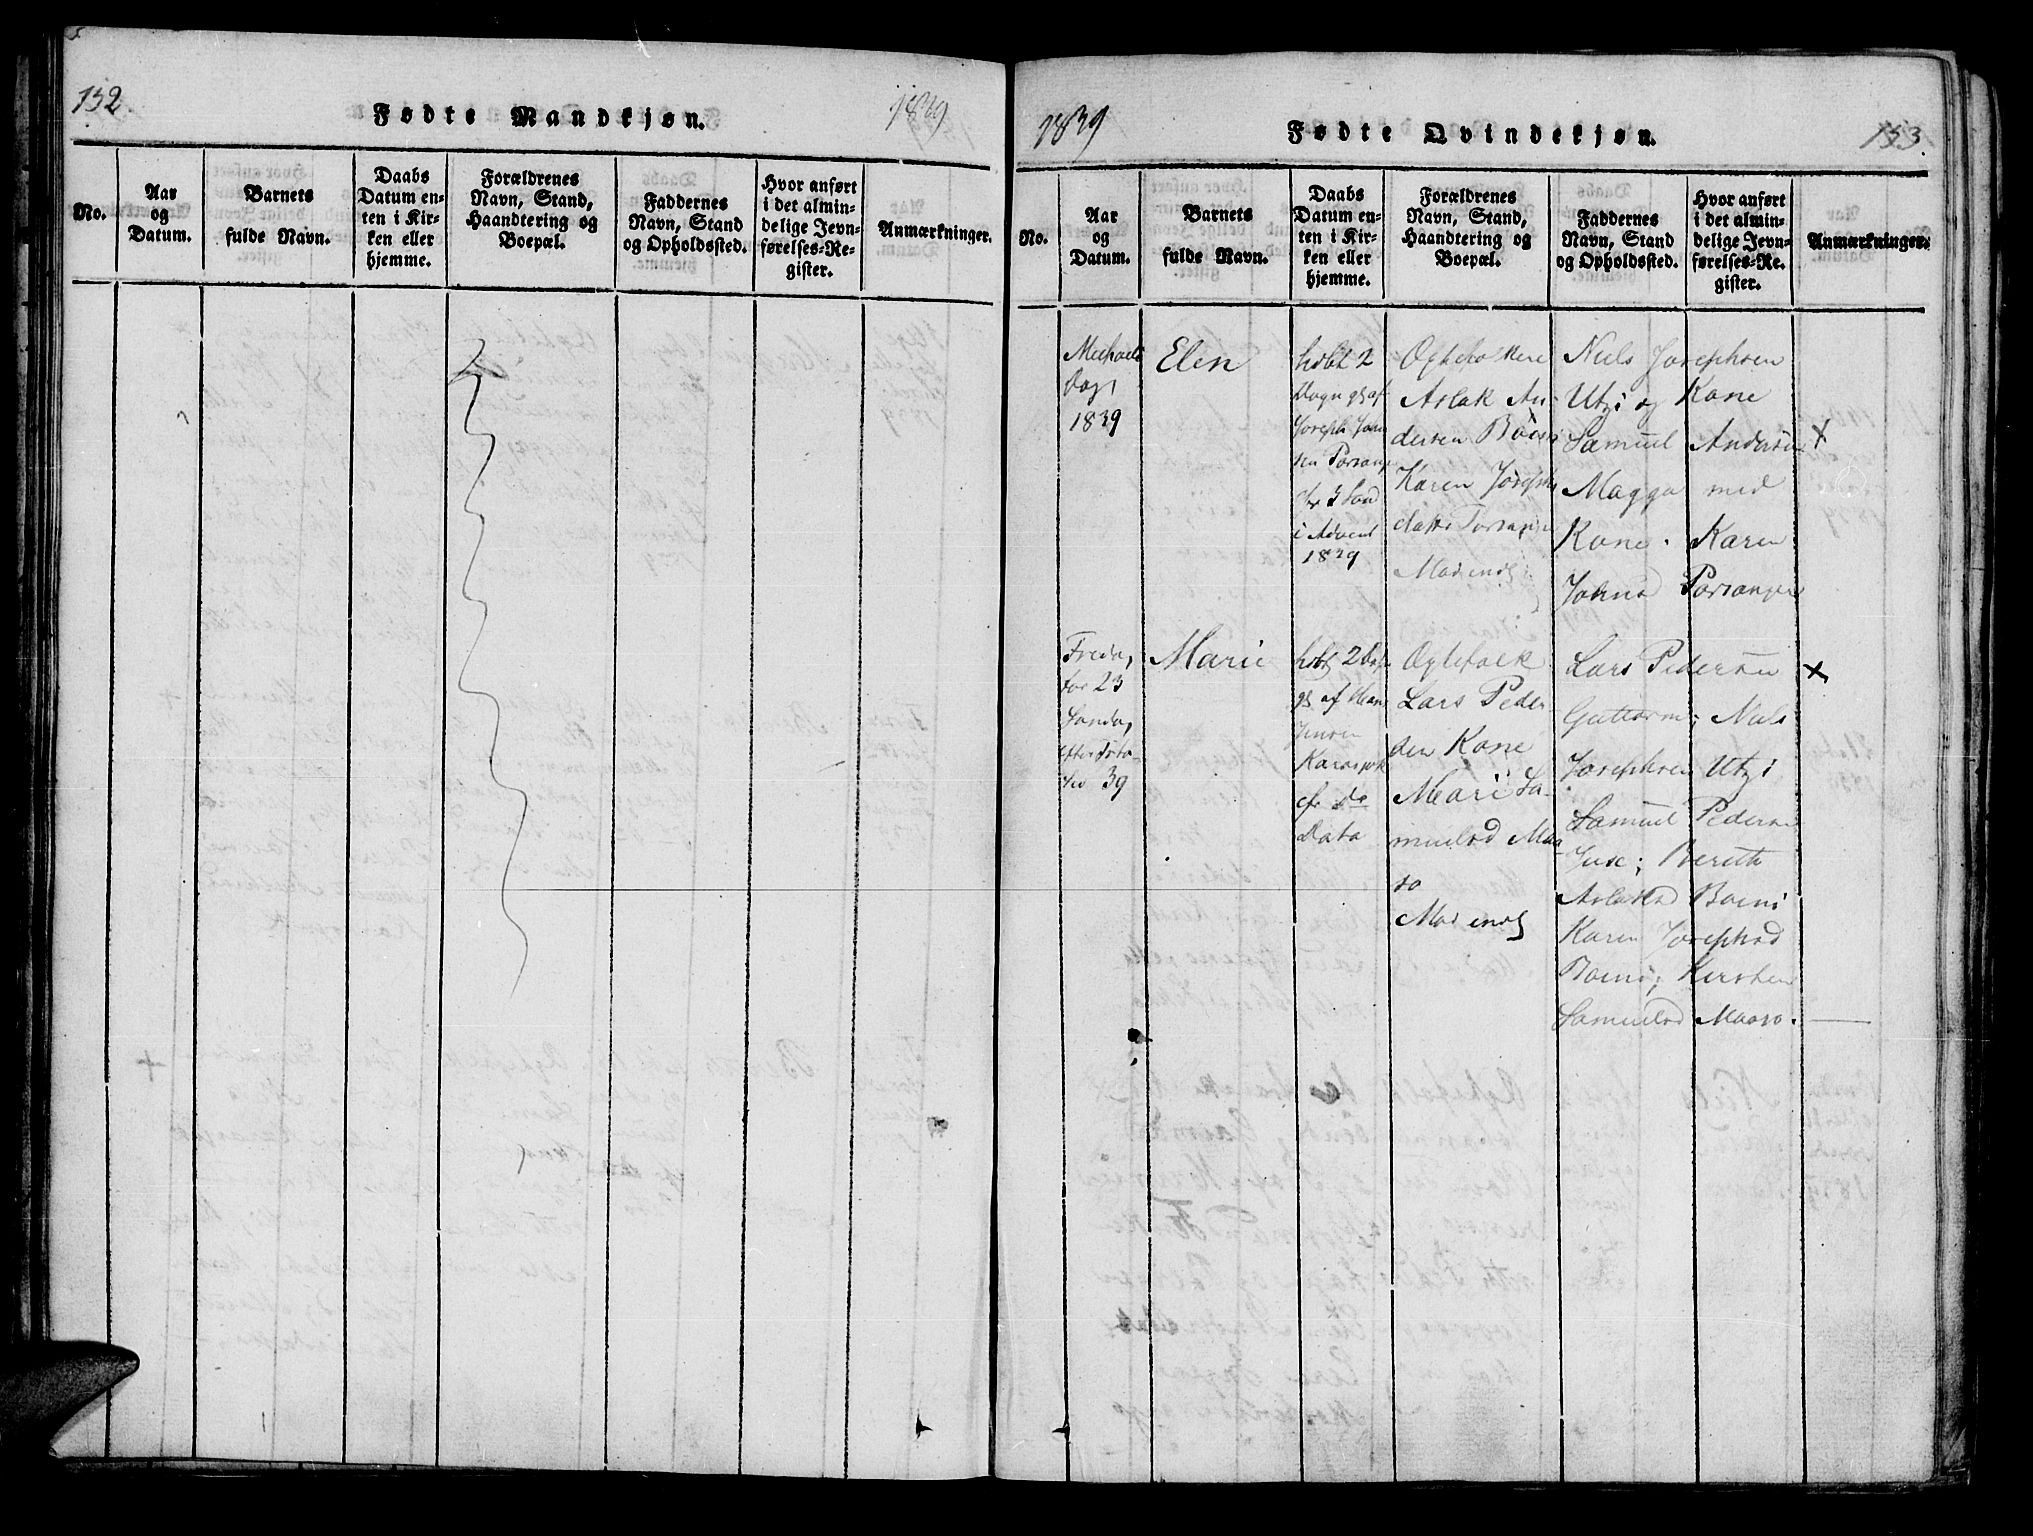 132.
Fødte Mandkjøn.
1839
No.
Aar
og
Datum.
Barnets
fulde Navn.
Daabs
Datum en-
ten i Kir-
ken eller
hjemme.
Forældrenes
Navn, Stand,
Haandtering og
Boepæl.
Faddernes
Navn, Stand
og Opholdssted.
Hvor anført
i det almin-
delige Jevn-
førelses-Re-
gister.
Anmærkninger.
1839
Fødte Qvindekjøn.
133.
No.
Aar
og
Datum.
Barnets
fulde Navn.
Daabs
Datum en-
ten i Kir-
ken eller
hjemme.
Forældrenes
Navn, Stand,
Haandtering og
Boepæl.
Faddernes
Navn, Stand
og Opholdssted.
Hvor anført
i det almin-
delige Jevn-
førelses-Re-
gister.
Anmærkninger.
Michaels
Dag,
1839
Elen
hdbt 2
Dagn gl af
Joseph Jons
sen Porsang
cfr 3 Sønd
i Advent
1839
Ogtefolkene
Aslak An-
dersen Boini
Karen Josephs
datter Porsanger
Mas inds
Niels Josephsen
Utzi og Kone
Samuel Andersen
Magga med
Kone. Karen
Johnsd Porsanger
+
Freda,
før 23
Sønda,
efter
39
Marie
hdbt 2 Da
gl af Hans
Jensen
Karasjok
cfr do
Dato
Ogtefolk
Lars Peder
den Kone
Mari Sa-
muelsd Maa-
so
Mas inds
Lars Pedersen
Guttorm; Niels
Josephsen Utzi
Samuel Pedersen
Juse; Berith
Aslaksd Boini
Karen Josephsd
Boini; Kirsten
Samuelsd Maaso.
+